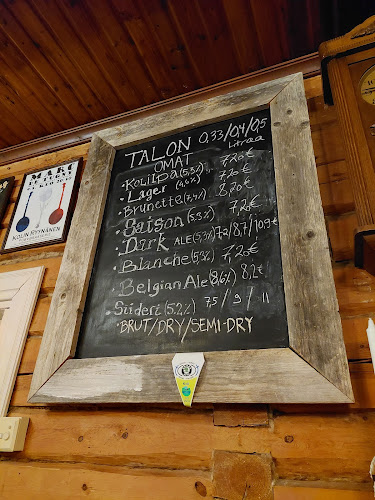 TALON 0,33/04/0,5
OMAT Litraa
• KoliIpa (5,3%) 7,20€
• Lager (4,6%) 7,20€
• Brunette (7,4%) 8,20€
• Saison (5,3%) 7,20€
• Dark ALE (5,3%) 7,2/8,7/10,9€
• Blanche (5%) 7,20€
• Belgian Ale (8,6%) 8,2€
• Siideri (5,2%) 7,5/9/11
• BRUT/DRY/SEMI-DRY
MARU
KOLIN RYYNÄNEN